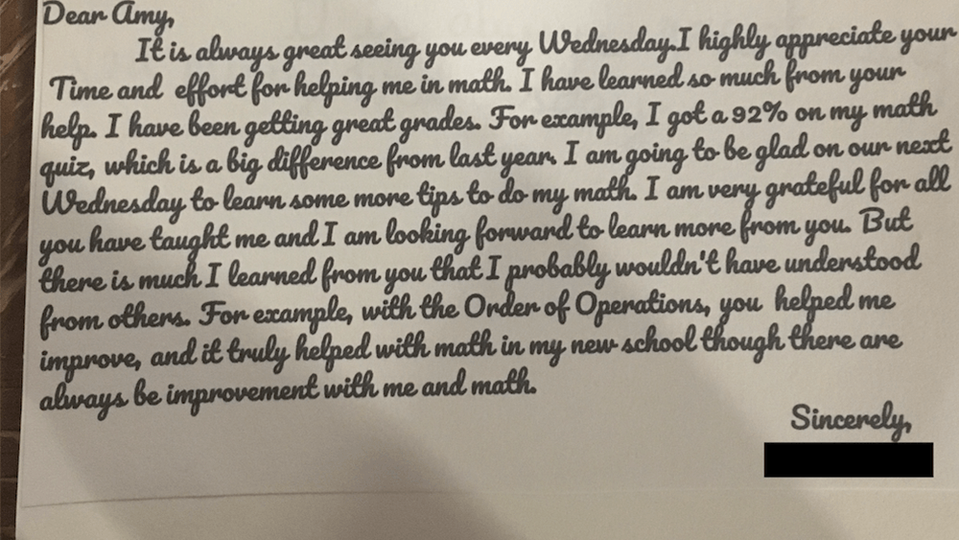 Dear Amy,
It is always great seeing you every Wednesday.I highly appreciate your
Time and effort for helping me in math. I have learned so much from your
help. I have been getting great grades. For example, I got a 92% on my math
quiz, which is a big difference from last year. I am going to be glad on our next
Wednesday to learn some more tips to do my math. I am very grateful for all
you have taught me and I am looking forward to learn more from you. But
there is much I learned from you that I probably wouldn't have understood
from others. For example, with the Order of Operations, you helped me
improve, and it truly helped with math in my new school though there are
always be improvement with me and math.
Sincerely,